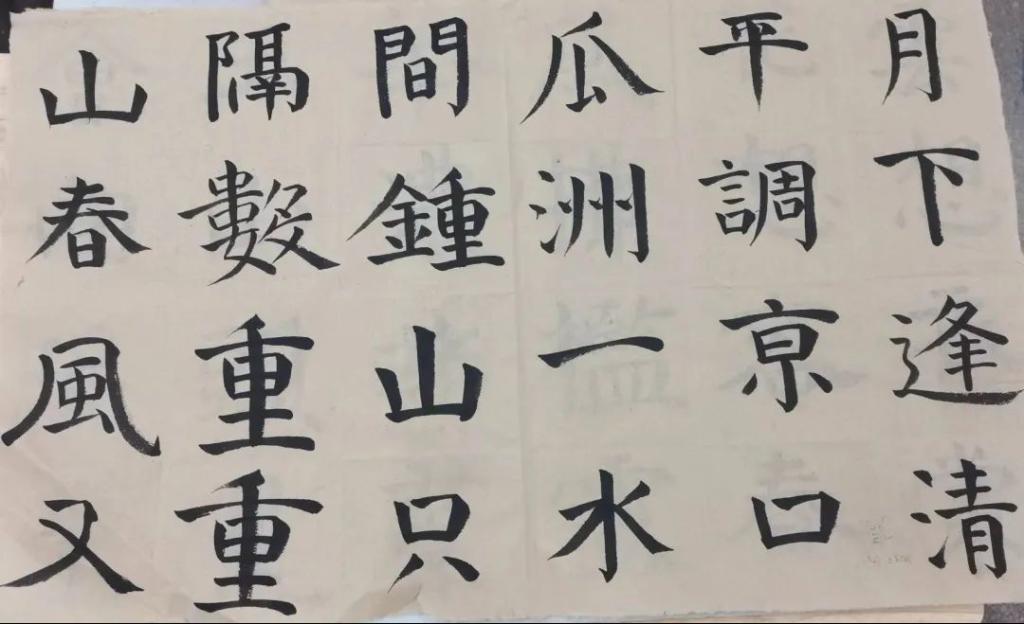 月下逢清
平調京口
瓜洲一水
間鍾山只
隔數重重
山春風又